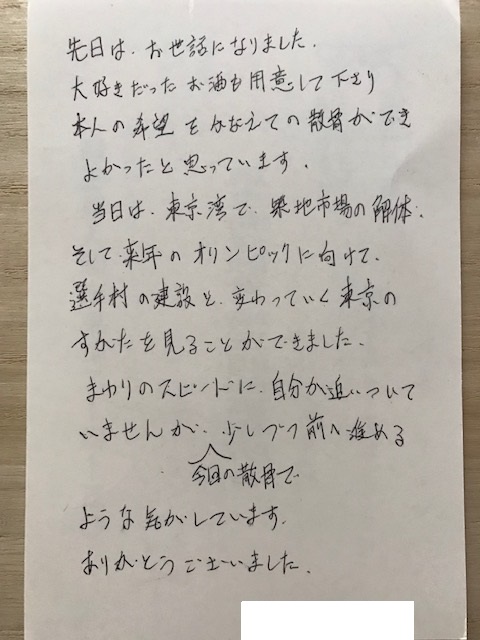 先日は、お世話になりました。
大好きだったお酒も用意して下さり
本人の希望をかなえての散骨ができ
よかったと思っています。
当日は、東京湾で、築地市場の解体、
そして、来年のオリンピックに向けて、
選手村の建設と、変わっていく東京の
すがたを見ることができました。
まわりのスピードに、自分が追いついて
いませんが、少しづつ前へ進める
今回の散骨で
ような気がしています。
ありがとうございました。